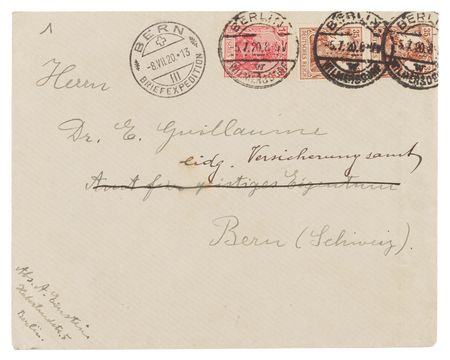 1
BERN
-8.VII.20-13
III
BRIEFEXPEDITION
BERLIN
5.7.20.8-9V
WILMERSDORF
BERLIN
5.7.20.8-9V
WILMERSDORF
BERLIN
5.7.20.8-9V
WILMERSDORF
Herrn
Dr. E. Guillaume
eidg. Versicherungsamt
Amt für geistiges Eigentum
Bern (Schweiz).
Abs. A. Einstein
Haberlandstr. 5
Berlin.